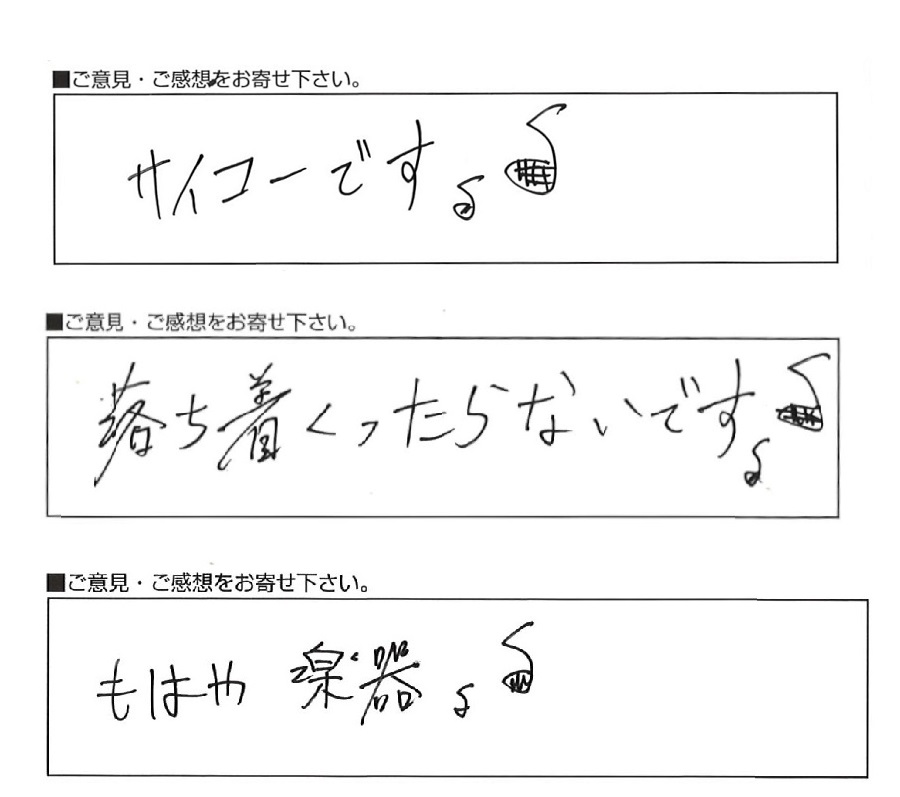 ■ご意見・ご感想をお寄せ下さい。
サイコーです。
■ご意見・ご感想をお寄せ下さい。
落ち着くったらないです。
■ご意見・ご感想をお寄せ下さい。
もはや 楽器。